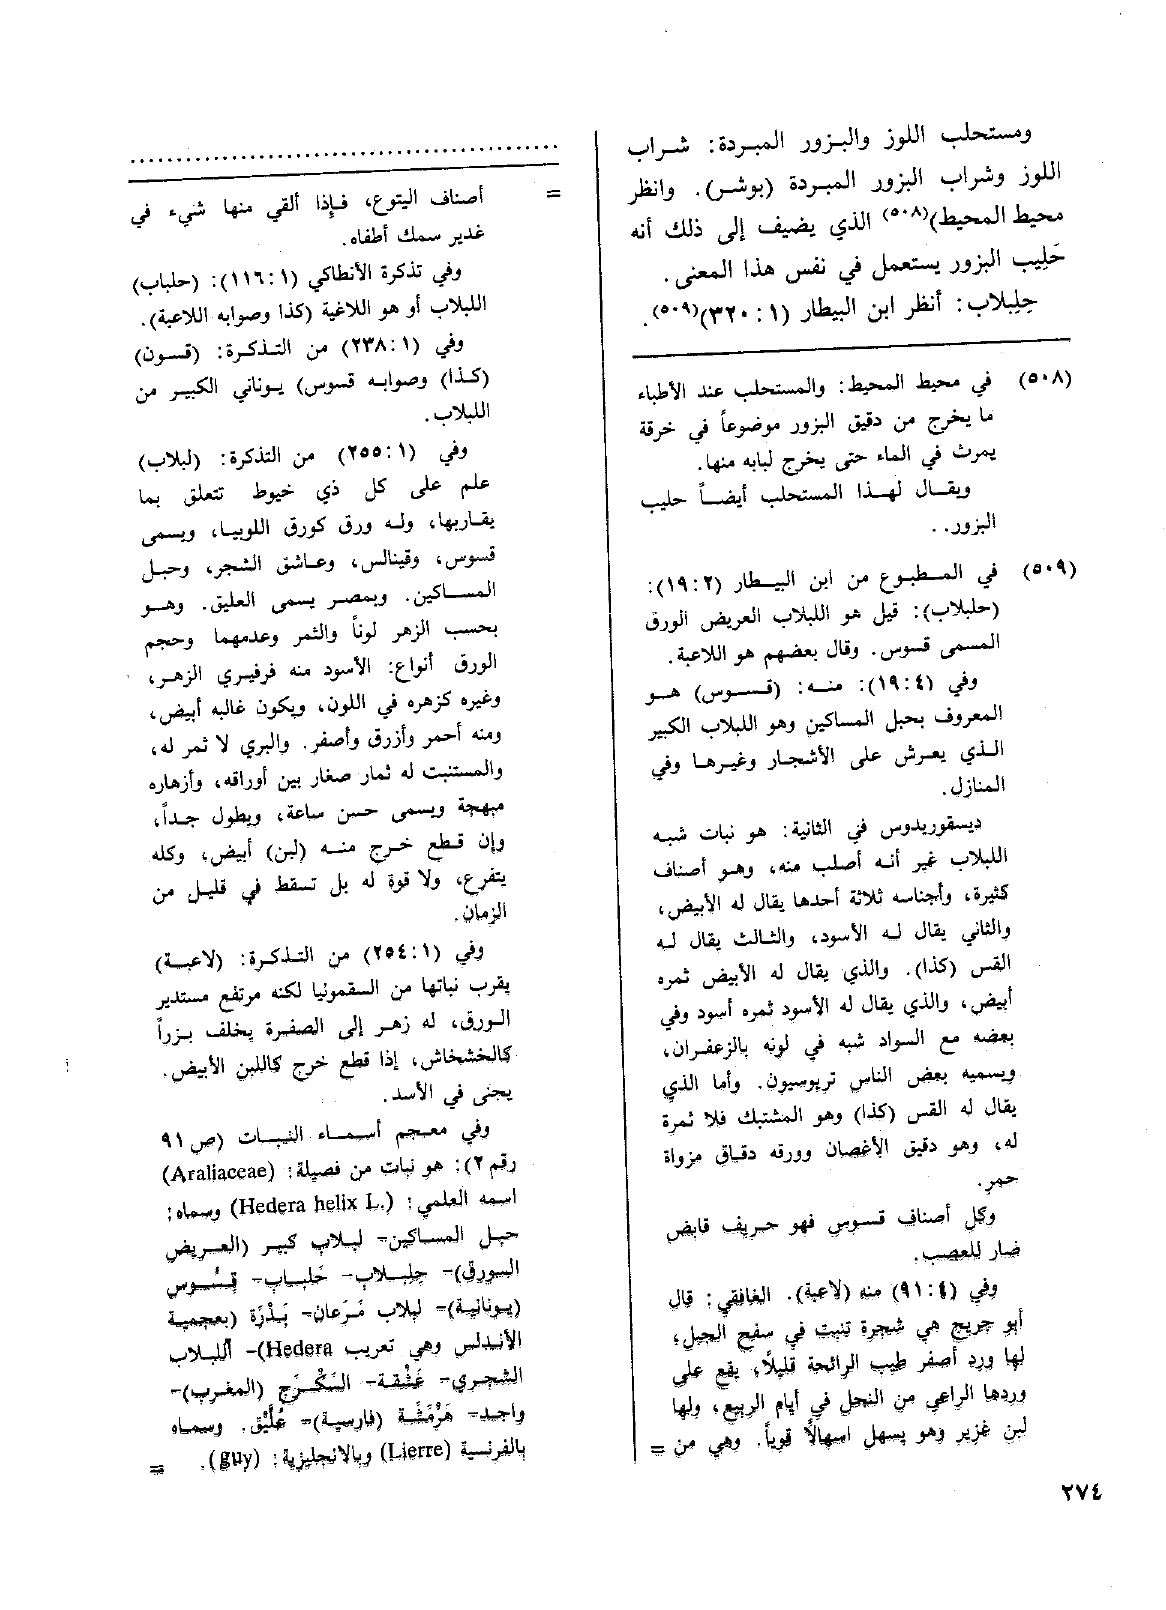 ومستحلب اللوز والبزور المبردة: شراب
اللوز وشراب البزور المبردة (بوشر). وانظر
محيط المحيط)(٥٠٨) الذي يضيف إلى ذلك أنه
حَلِيب البزور يستعمل في نفس هذا المعنى.
حِلِبلاب: أنظر ابن البيطار (١: ٣٢٠)(٥٠٩).
(٥٠٨) في محيط المحيط: والمستحلب عند الأطباء
ما يخرج من دقيق البزور موضوعاً في خرقة
يمرث في الماء حتى يخرج لبابه منها.
ويقال لهذا المستحلب أيضاً حليب
البزور..
(٥٠٩) في المطبوع من ابن البيطار (٢: ١٩):
(حلبلاب): قيل هو اللبلاب العريض الورق
المسمى قسوس. وقال بعضهم هو اللاعبة.
وفي (٤: ١٩): منه: (قسوس) هو
المعروف بحبل المساكين وهو اللبلاب الكبير
الذي يعرش على الأشجار وغيرها وفي
المنازل.
ديسقوريدوس في الثانية: هو نبات شبه
اللبلاب غير أنه أصلب منه، وهو أصناف
كثيرة، وأجناسه ثلاثة أحدها يقال له الأبيض،
والثاني يقال له الأسود، والثالث يقال له
القس (كذا). والذي يقال له الأبيض ثمره
أبيض، والذي يقال له الأسود ثمره أسود وفي
بعضه مع السواد شبه في لونه بالزعفران،
ويسميه بعض الناس تريوسيون. وأما الذي
يقال له القس (كذا) وهو المشتبك فلا ثمرة
له، وهو دقيق الأغصان وورقه دقاق مزواة
حمر.
وكل أصناف قسوس فهو حريف قابض
ضار للعصب.
وفي (٤: ٩١) منه (لاعبة). الغافقي: قال
أبو جريج هي شجرة تنبت في سفح الجبل،
لها ورد أصفر طيب الرائحة قليلاً، يقع على
وردها الراعي من النحل في أيام الربيع، ولها
لبن غزير وهو يسهل اسهالاً قوياً. وهي من =
= أصناف اليتوع، فإذا ألقي منها شيء في
غدير سمك أطفاه.
وفي تذكرة الأنطاكي (١: ١١٦): (حلباب)
اللبلاب أو هو اللاغية (كذا وصوابه اللاعبة).
وفي (١: ٢٣٨) من التذكرة: (قسون)
(كذا) وصوابه قسوس) يوناني الكبير من
اللبلاب.
وفي (١: ٢٥٥) من التذكرة: (لبلاب)
علم على كل ذي خيوط تتعلق بما
يقاربها، وله ورق كورق اللوبيا، ويسمى
قسوس، وقينالس، وعاشق الشجر، وحبل
المساكين. وبمصر يسمى العليق. وهو
بحسب الزهر لوناً والثمر وعدمهما وحجم
الورق أنواع: الأسود منه فرفيري الزهر،
وغيره كزهره في اللون، ويكون غالبه أبيض،
ومنه أحمر وأزرق وأصفر. والبري لا ثمر له،
والمستنبت له ثمار صغار بين أوراقه، وأزهاره
مبهجة ويسمى حسن ساعة، ويطول جداً،
وإن قطع خرج منه (لبن) أبيض، وكله
يتفرع، ولا قوة له بل تسقط في قليل من
الزمان.
وفي (١: ٢٥٤) من التذكرة: (لاعبة)
يقرب نباتها من السقمونيا لكنه مرتفع مستدير
الورق، له زهر إلى الصفرة يخلف بزراً
كالخشخاش، إذا قطع خرج كاللبن الأبيض.
يجنى في الأسد.
وفي معجم أسماء النبات (ص ٩١
رقم ٢): هو نبات من فصيلة: (Araliaceae)
اسمه العلمي: (Hedera helix L.) وسماه:
حبل المساكين- لبلاب كبير (العريض
الورق)- حِلِبلاب- حَلباب- قِسُّوس
(يونانية)- لبلاب مَزعان- يَذْرَة (بعجمية
الأندلس وهي تعريب Hedera)- اللبلاب
الشجري- عَشْقة- السَّكْرَج (المغرب)-
واجد- هَرْمَشَة (فارسية)- عُلَّيْق. وسماه
بالفرنسية (Lierre) وبالانجليزية: (guy). =
٢٧٤